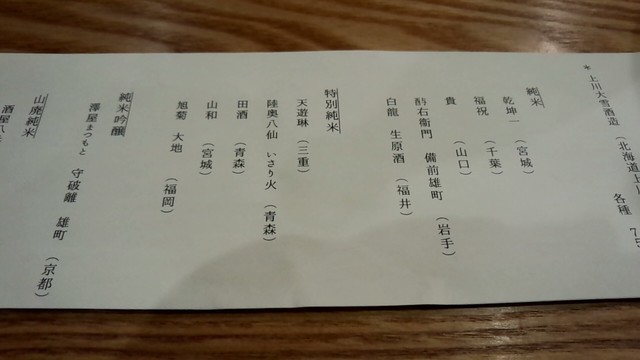 ＊上川大雪酒造（北海道上川
各種 75
純米
乾坤一（宮城）
福祝（千葉）
貴（山口）
酉右衛門 備前雄町（岩手）
白龍 生原酒（福井）
特別純米
天遊琳（三重）
陸奥八仙 いさり火（青森）
田酒（青森）
山和（宮城）
旭菊 大地（福岡）
純米吟醸
澤屋まつもと 守破離 雄町（京都）
山廃純米
酒屋八